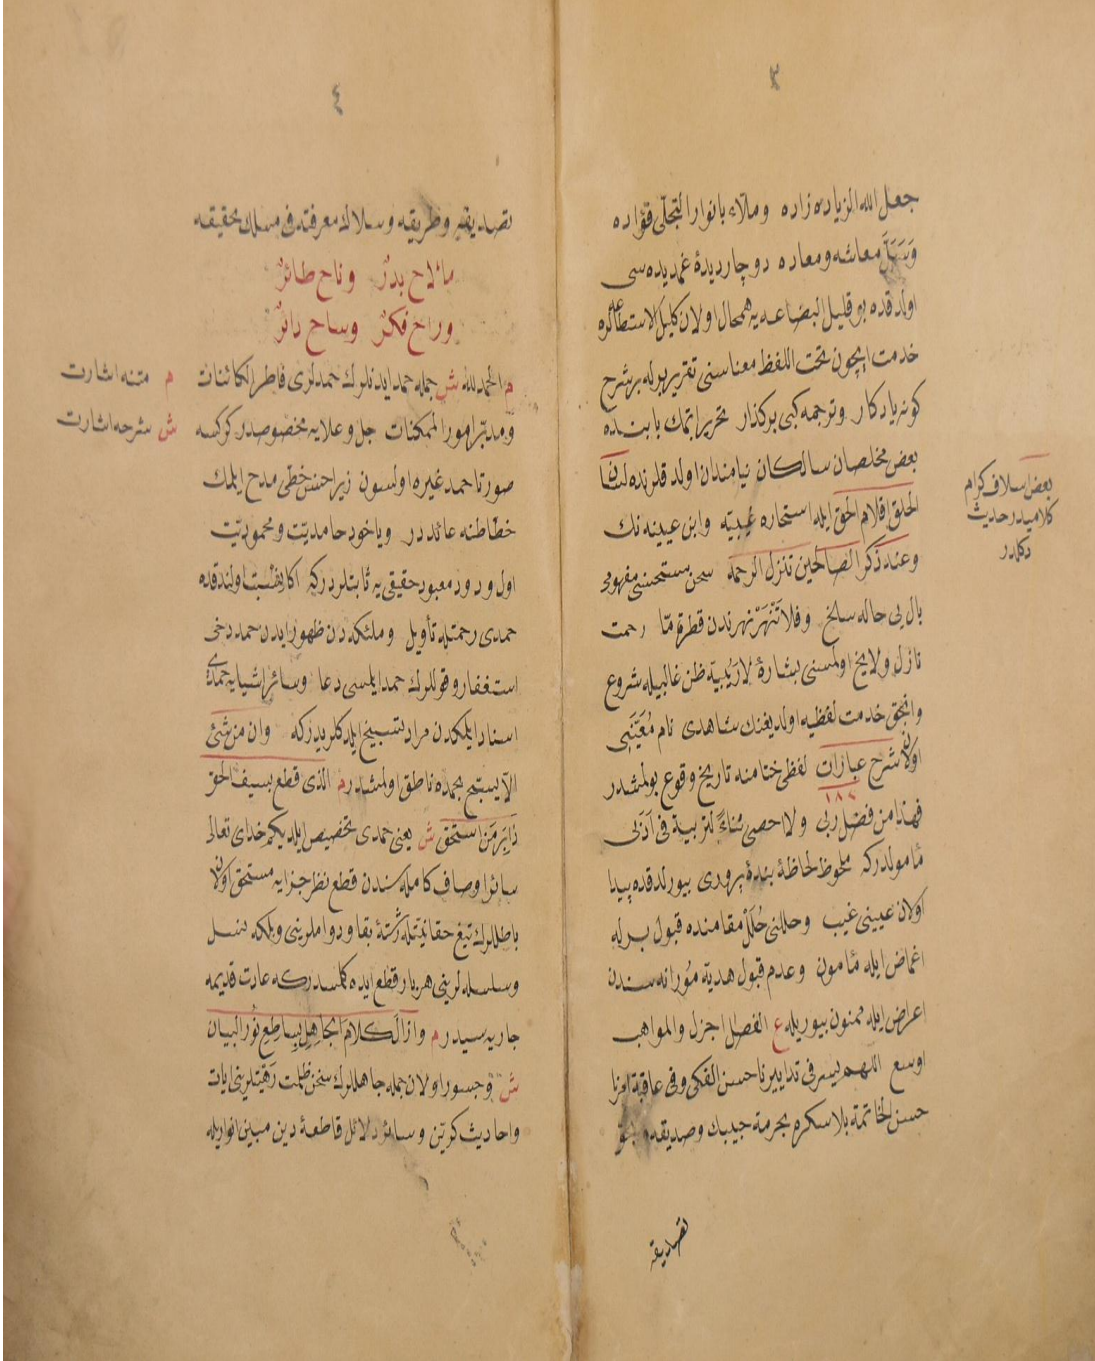 ٣
جعل الله الزيادة زاده وملاء بانوار التجلى فؤاده
وسهل معاشه ومعاده دوچار ديدۀ غمديده سى
اولدقده بو قليل البضاعه يه همحال اولان كليل الاستطاعه لره
خدمت ايچون تحت اللفظ معناسنى تقرير برله بر شرح
كونه يادكار وترجمه كبى بركذار تحرير ايتمك بابنده
بعض مخلصان سالكان نيازمندان اولدقلرنده لسان
الخلق اقلام الحق ايله استخاره غيبيه وابن عيينه نك
وعند ذكر الصالحين تنزل الرحمة سخن مستحسنى مفهومى
بال بى حاله سلخ وفلا تنهر نهرندن قطرۀ ما رحمت
نازل ولايح اولمسنى بشارۀ لاريبيه ظن غالبيله شروع
وانجق خدمت لفظيه اولديغنك شاهدى نام معينى
اولان شرح عبارات لفظى ختامنه تاريخ وقوع بولمشدر
فهذا من فضل ربى ولا احصى ثناء لتربية فى
مأمولدركه ملحوظ لحاظۀ بنده پرورى بيورلدقده پيدا
اولان عيبنى غيب وحللنى حلل مقامنده قبول برله
اغماض ايله مأمون وعدم قبول هديۀ مورانه سندن
اعراض ايله ممنون بيوريله ع الفضل اجزل والمواهب
اوسع اللهم يسر فى تدابيرنا حسن الفكر وفى عاقبة امرنا
حسن الخاتمة بلا سكره بحرمة حبيبك وصديقه
تصديقه
بعض اسلاف كرام
كلاميدر حديث
دكلدر
٤
تصديقه وطريقه وسلاك معرفته فى مسلك حقيقه
ما لاح بدر وناح طائر
وراح فكر وساح دائر
م الحمد لله ش جمله حمد ايدنلرك حمدلرى فاطر الكائنات
ومدبر امور الممكنات جل وعلايه مخصوصدر كركسه
صورتا حمد غيره اولسون زيرا حسن خطى مدح ايلمك
خطاطنه عائددر وياخود حامديت ومحموديت
اول ودود معبود حقيقى يه ثابتلردركه اكا نسبت اولندقده
حمدى رحمتله تأويل وملئكه دن ظهور ايدن حمد دخى
استغفار وقوللرك حمد ايلمسى دعا وسائر اشيايه حمدى
اسناد ايلمكدن مراد تسبيح ايلدكلريدركه وان من شئ
الا يسبح بحمده ناطق اولمشدر م الذى قطع بسيف الحق
دابر من استحق ش يعنى حمدى تخصيص ايلديكم خداى تعالى
سائر اوصاف كامله سندن قطع نظر جزايه مستحق اولان
باطللرك تيغ حقانيتله رشتۀ بقا ودواملرينى وبلكه نسل
وسلسله لرينى هربار قطع ايده كلمسدركه عادت قديمه
جاريه سيدر م وازال كلام الجاهل بساطع نور البيان
ش وجسور اولان جمله جاهللرك سخن ظلمت رقيتلرينى ايات
واحاديث كريمين وسائر دلائل قاطعۀ دين مبين انواريله
م متنه اشارت
ش شرحه اشارت